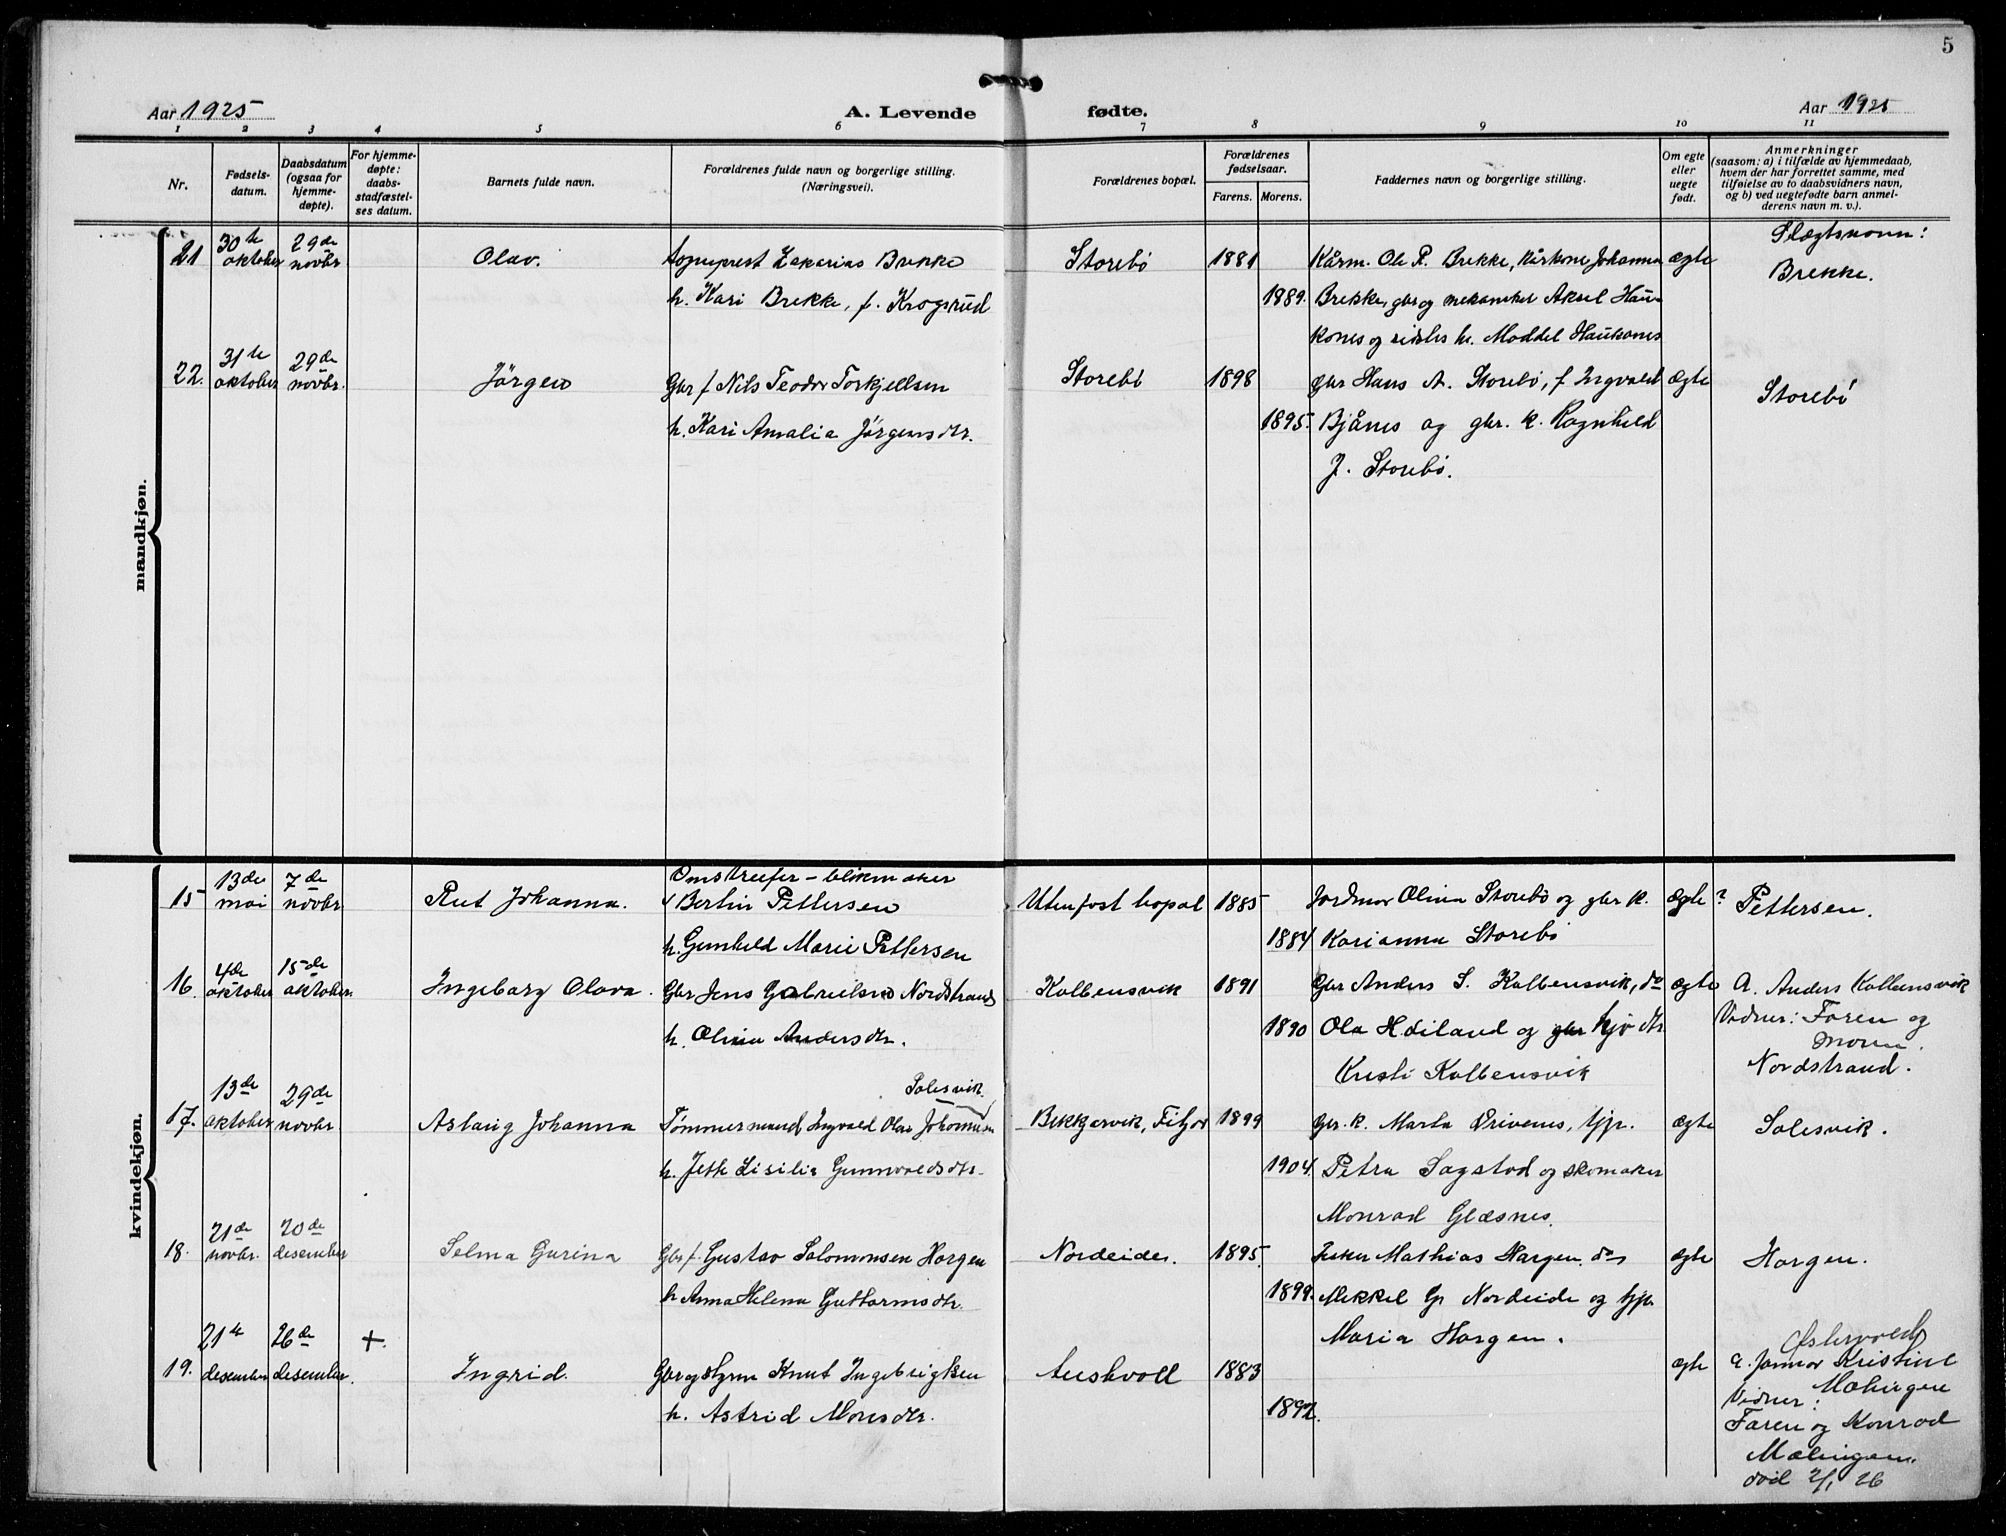 5
Aar 1925
A. Levende fødte.
Aar 1925
1 2 3 4 5 6 7 8 9 10 11
Nr.
Fødsels-
datum.
Daabsdatum
(ogsaa for
hjemme-
døpte).
For hjemme-
døpte:
daabs-
stadfæstel-
ses datum.
Barnets fulde navn.
Forældrenes fulde navn og borgerlige stilling.
(Næringsvei).
Forældrenes bopæl.
Forældrenes
fødselsaar.
Farens. Morens.
Faddernes navn og borgerlige stilling.
Om egte
eller
uegte
født.
Anmerkninger
(saasom: a) i tilfælde av hjemmedaab,
hvem der har forrettet samme, med
tilføielse av to daabsvidners navn,
og b) ved uegtefødte barn anmel-
derens navn m. v.).
mandkjøn.
21
30te
oktober
29de
novbr
Olav.
Sogneprest Zakarias Brekke
h. Kari Brekke, f. Krogsrud
Storebø
1881
1889.
Kårm. Ole P. Brekke, kårkone Johanna
Brekke, gbr og mekaniker Aksel Hau-
kanes og h. Moddel Haukanes
ægte
Slægtsnavn:
Brekke.
22.
31te
oktober
29de
novbr.
Jörgen
Gbr f Nils Teodor Torkjellsen
h. Kari Amalia Jörgensdtr.
Storebø
1898
1895.
gbr Hans A. Storebø, f Ingvald
Bjånes og gbr. k. Ragnhild
J. Storebø.
ægte
Storebø
kvindekjøn.
15
13de
mai
7de
novbr
Rut Johanna.
Omstreifer – blikmaker
Bertin Pettersen
h. Gunhild Marie Pettersen
Uten fast bopal
1885
1884
Jordmor Olina Storebø og gbr k.
Karianna Storebø
ægte ?
Pettersen.
16.
4de
oktober
15de
oktober.
Ingeborg Olava.
Gbr Jens Gabrielsen Nordstrand
h. Olina Andersdtr.
Kolbensvik
1891
1890
Gbr Anders S. Kolbensvik, do
Ola Høiland og gbr hjv dtr
Kristi Kolbensvik
ægte
A. Anders Kolbensvik
Vidner: Faren og
Moren.
Nordstrand.
17.
13de
oktober
29de
novbr.
Aslaug Johanna
Solesvik.
Tømmermand Ingvald Olai Johannesen
h. Jette Lisilia Gunnvaldsdtr.
Bekkjarvik, Fitjar
1899
1904.
gbr. k. Marta Drivenes, tjp.
Petra Sagstad og skomaker
Monrad Glæsnes.
ægte
Solesvik.
18.
21de
novbr.
20de
desember
Selma Gurina
Gbr f. Gustav Salomonsen Horgen
h Anna Helena Guttormsdtr.
Nordeide.
1895.
1899.
fisker Mathias Horgen. do
Mikkel G. Nordeide og tjp.
Maria Horgen.
ægte
Horgen.
19.
21te
desember
26de
desember.
+.
Ingrid.
Gbr og styrm Knut Ingebrigtsen
h. Astrid Monsdtr.
Austvoll
1883
1892.
ægte
Østervold
a. jormor Kristine
Møkingen
Vidner:
Faren og Konrad
Møkingen.
död 2/1 26